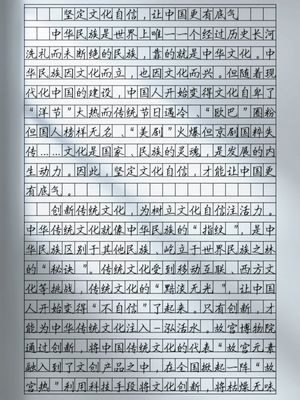 坚定文化自信，让中国更有底气
中华民族是世界上唯一一个经过历史长河
洗礼而未断绝的民族，靠的就是中华文化。中
华民族因文化而立，也因文化而兴。但随着现
代化中国的建设，中国人开始变得文化自卑了
“洋节”大热而传统节日遇冷、“欧巴”圈粉
但国人榜样无名、“美剧”火爆但京剧国粹失
传……文化是国家、民族的灵魂，是发展的内
生动力。因此，坚定文化自信，才能让中国更
有底气。
创新传统文化，为树立文化自信注活力。
中华传统文化就像中华民族的“指纹”，是中
华民族区别于其他民族、屹立于世界民族之林
的“秘诀”。传统文化受到移动互联、西方文
化等挑战，传统文化的“黯淡无光”，让中国
人开始变得“不自信”了起来。只有创新，才
能为中华传统文化注入一泓活水。故宫博物院
通过创新，将中国传统文化的代表“故宫元素
融入到了文创产品之中，在全国掀起一阵“故
宫热”利用科技手段将文化创新，将枯燥无味